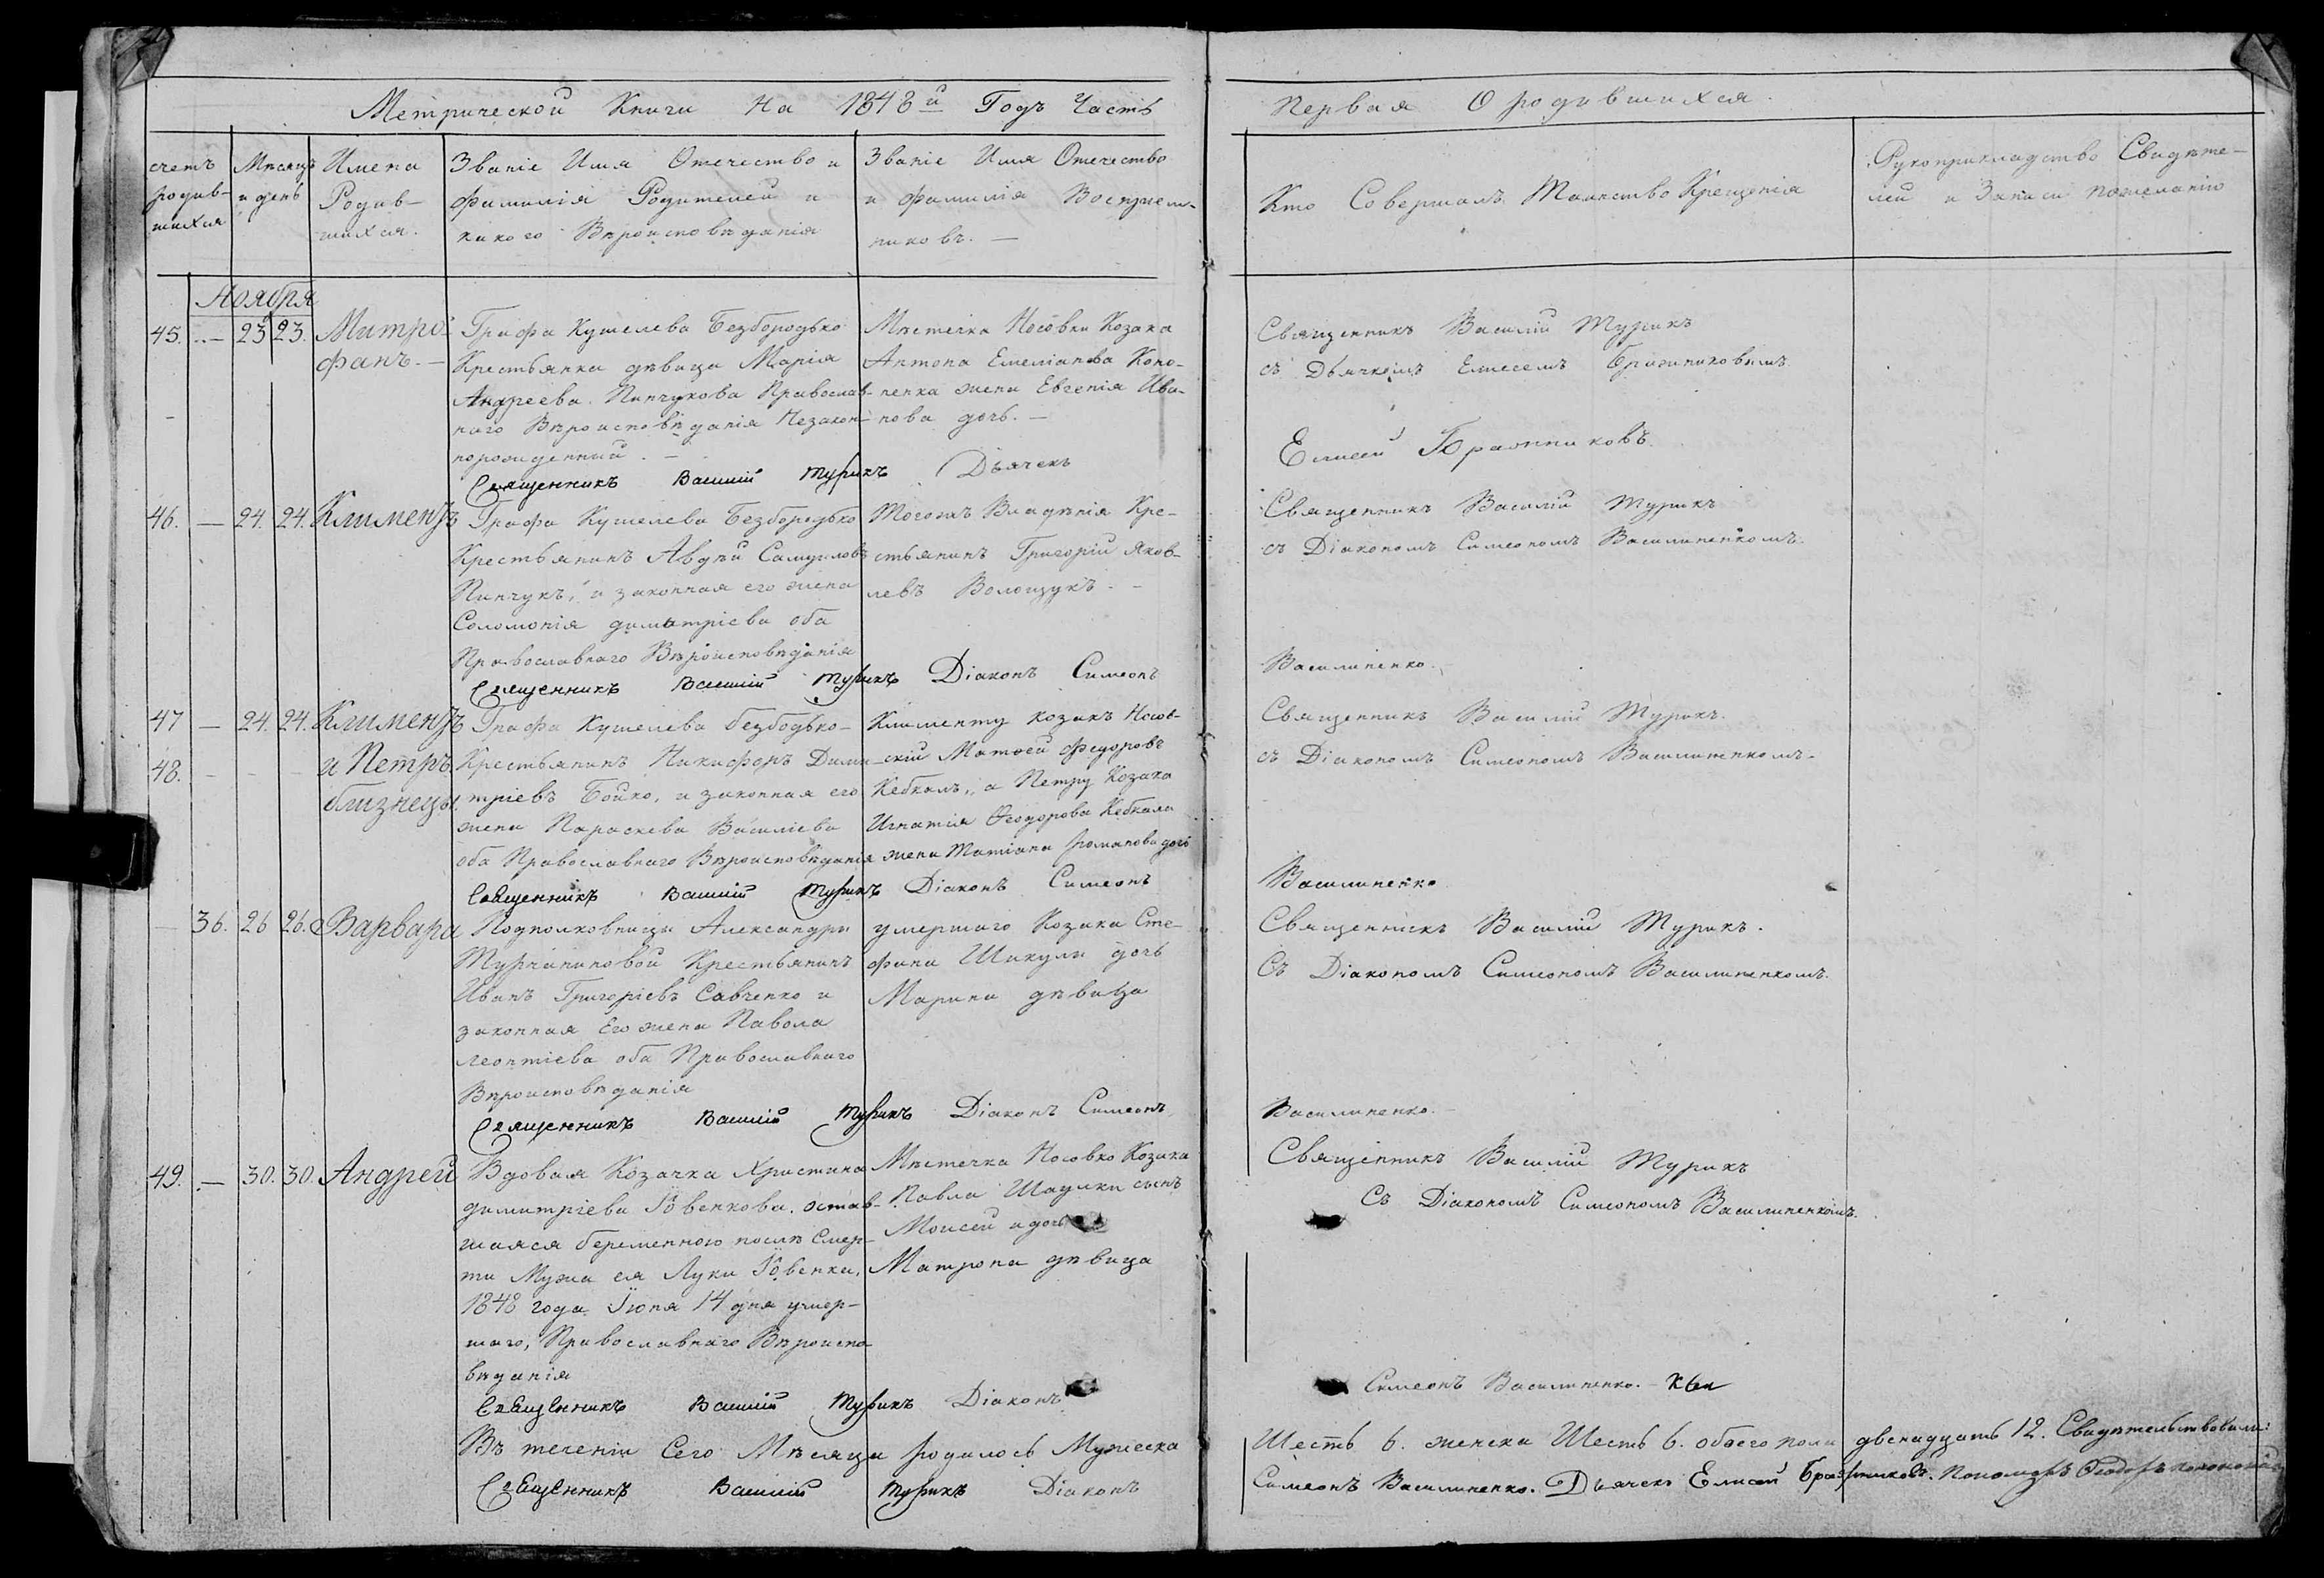 Метрической Книги На 1848й Годъ Часть
Первая О родившихся.
счетъ родив-шихся
Мѣсяцъ и день
Имена Родив-шихся.
Званіе Имя Отечество и
фамилія Родителей и
какого Вѣроисповѣданія
Званіе Имя Отечество
и фамилія Воспріем-
никовъ. —
Кто Совершалъ Таинство Крещенія
Рукоприкладство Свидѣте-
лей и Записи пожеланію
Ноября
45. — 23 23. Митро-
фанъ. —
Графа Кушелева Безбородько
Крестьянка дѣвица Марія
Андреева Пинчукова Православ-
наго Вѣроисповѣданія Незакон-
норожденный. —
Мѣстечка Носовки Козака
Антона Емеліанова Коно-
ненка жена Евгенія Ива-
нова дочь. —
Священникъ Василій Турикъ
съ Дьячкомъ Елисеемъ Бражниковымъ
Священникъ Василій Турикъ Дьячекъ
Елисей Бражниковъ.
46. — 24. 24. Климентъ
Графа Кушелева Безбородько
Крестьянинъ Авдѣй Самуиловъ
Пинчукъ, и законная его жена
Соломонія диматріева оба
Православнаго Вѣроисповѣданія
Тогожъ Владѣнія Кре-
стьянинъ Григорій Яков-
левъ Волощукъ. —
Священникъ Василій Турикъ
съ Діакономъ Симеономъ Василиненкомъ.
Священникъ Василій Турикъ Діаконъ Симеонъ
Василиненко.
47 — 24. 24. Климентъ
48. и Петръ
близнецы.
Графа Кушелева безбодько-
Крестьянинъ Никифоръ Дими-
тріевъ Бойко, и законная его
жена Параскева Василіева
оба Православнаго Вѣроисповѣданія
Клименту козакъ Носов-
скій Матѳей Федоровъ
Кебкалъ, а Петру Козака
Игнатія Ѳеодорова Кебкала
жена Татіана романова дочь
Священникъ Василій Турикъ.
съ Діакономъ Симеономъ Василиненкомъ.
Священникъ Василій Турикъ Діаконъ Симеонъ
Василиненко
36. 26 26. Варвара
Подполковницы Александры
Турчаниновой Крестьянинъ
Иванъ Григоріевъ Савченко и
законная Его жена Павола
леонтіева оба Православнаго
Вѣроисповѣданія
умершаго Козака Сте-
фана Шикули дочь
Марина дѣвица
Священникъ Василій Турикъ.
Съ Діакономъ Симеономъ Василиненкомъ.
Священникъ Василій Турикъ Діаконъ Симеонъ
Василиненко.
49. — 30. 30. Андрей
Вдовая Козачка Христина
димитріева Ювенкова. остав-
шаяся беременною послѣ Смер-
ти Мужа ея Луки Ювенка,
1848 года Іюня 14 дня умер-
шаго, Православнаго Вѣроиспо-
вѣданія
Мѣстечка Носовко Козака
Павла Шаулки сынъ
Моисей и дочь
Матрона дѣвица
Священникъ Василій Турикъ
Съ Діакономъ Симеономъ Василиненкомъ.
Священникъ Василій Турикъ Діаконъ
Симеонъ Василиненко. —
Въ теченіи Сего Мѣсяца родилось Мужеска
Шесть 6. женска Шесть 6. обоего пола двенадцать 12. Свидѣтельствовали:
Священникъ Василій Турикъ Діаконъ
Симеонъ Василиненко. Дьячекъ Елисей Бражниковъ. Пономарь Ѳеодоръ